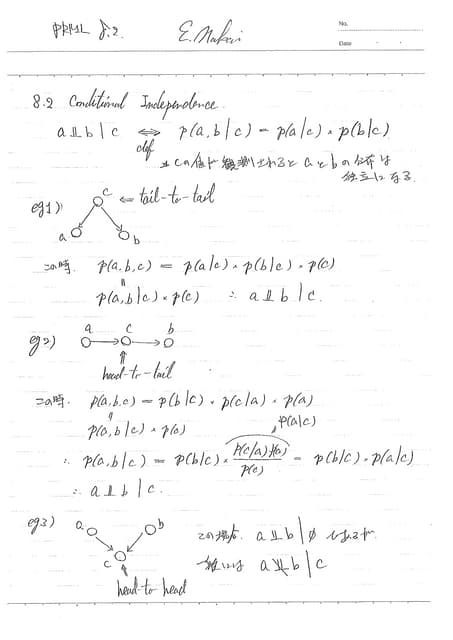 PRML 8.2.
No.
Date
8.2 Conditional Independence.
a⊥⊥b|c ⇔ p(a,b|c) = p(a|c)・p(b|c)
def
※cの値が観測されるとaとbの分布は
独立になる.
eg1)
c ← tail-to-tail
a b
この時. p(a,b,c) = p(a|c)・p(b|c)・p(c)
||
p(a,b|c)・p(c) ∴ a⊥⊥b|c.
eg2)
a c b
head-to-tail
この時. p(a,b,c) = p(b|c)・p(c|a)・p(a)
||
p(a,b|c)・p(c)
p(a|c)
∴ p(a,b|c) = p(b|c)・p(c|a)p(a)/p(c) = p(b|c)・p(a|c)
∴ a⊥⊥b|c.
eg3)
a b
この場合. a⊥⊥b|∅
c
一般には a⊥̸⊥b|c
head-to head